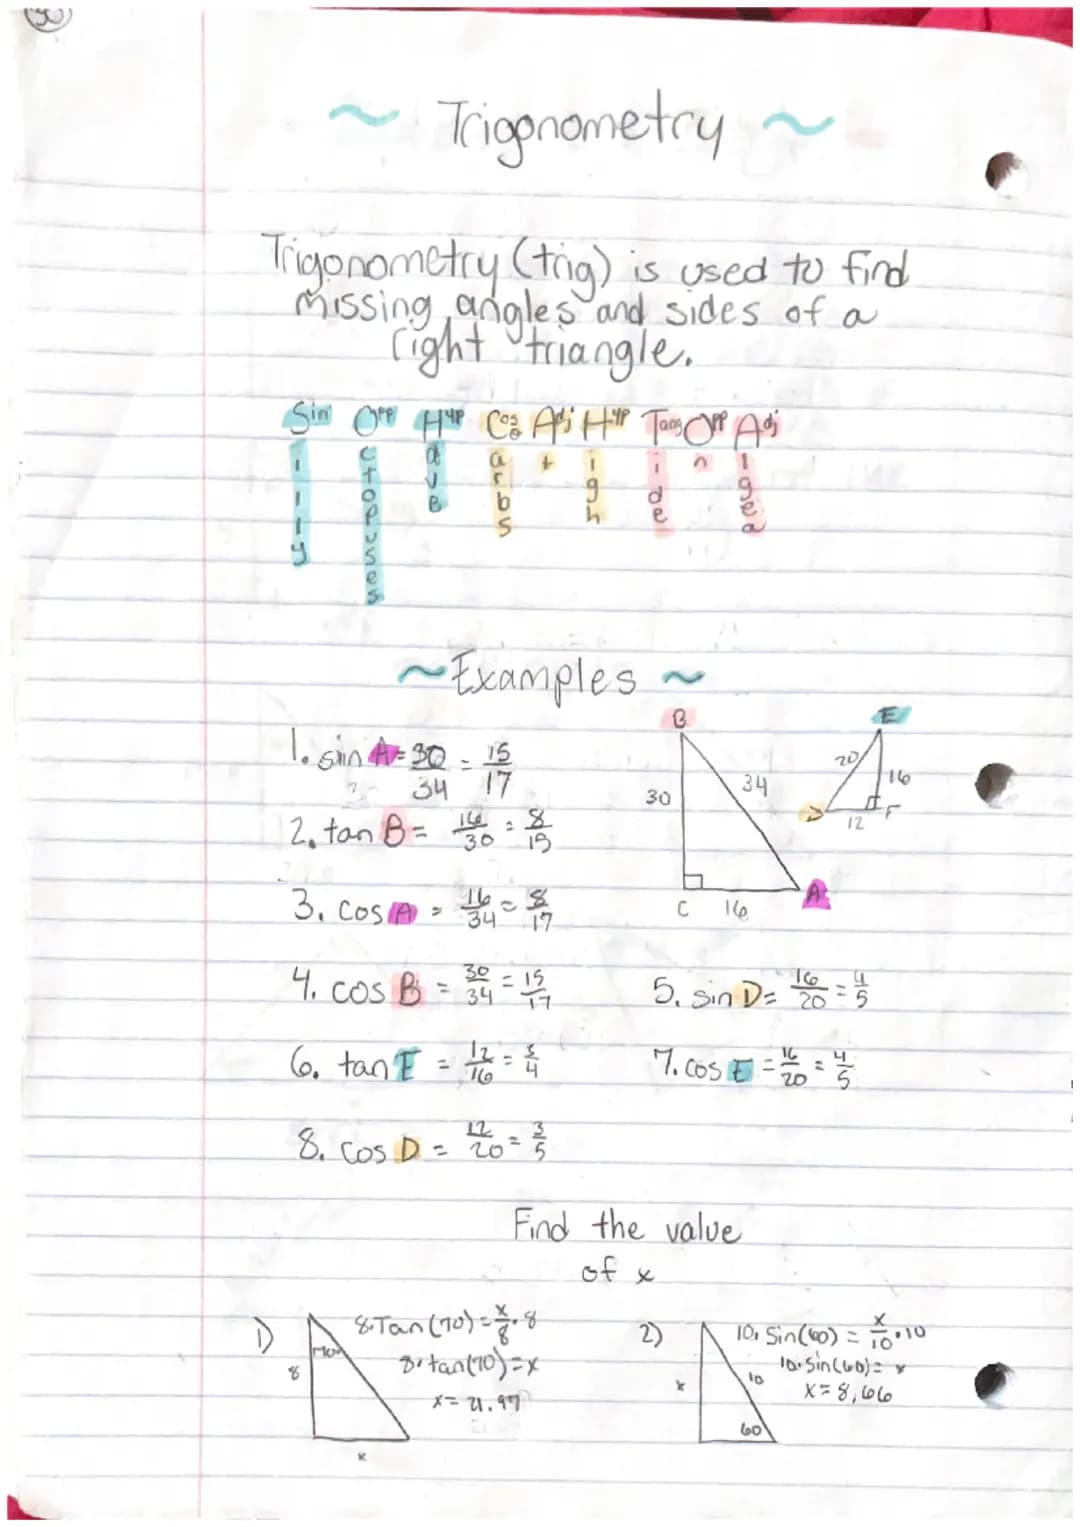 30
~ Trigonometry ~
Trigonometry (trig) is used to find
missing angles and sides of a
right triangle.
Sin Opp Hyp Cos Adj Hyp Tang Opp Adj
Silly Octopuses Have Carbs At High Tide On Algea
~ Examples ~
1. sin A = 30/34 = 15/17
2. tan B = 16/30 = 8/15
3. cos A = 16/34 = 8/17
B
30
34
C
16
A
E
20
16
D
12
F
4. cos B = 30/34 = 15/17
5. sin D = 16/20 = 4/5
6. tan E = 12/16 = 3/4
7. cos E = 16/20 = 4/5
8. cos D = 12/20 = 3/5
Find the value
of x
1)
70
8
x
8·Tan(70) = x/8 · 8
8·tan(70) = x
x = 21.97
2)
x
10
60
10· Sin(60) = x/10 · 10
10·Sin(60) = x
x = 8,66